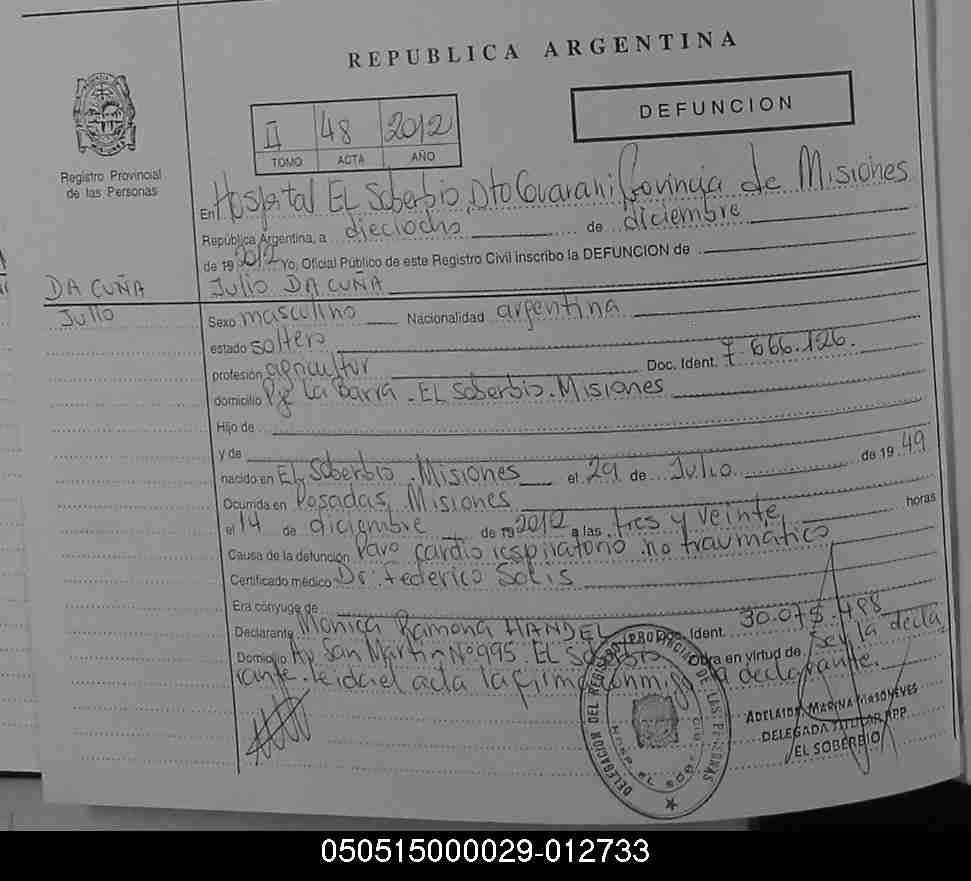 REPUBLICA ARGENTINA
DEFUNCION
II 48 2012
TOMO ACTA AÑO
Registro Provincial
de las Personas
En Hospital EL Soberbio, Dto Guarani Provincia de Misiones
República Argentina, a dieciocho de diciembre
de 19 2012 Yo, Oficial Público de este Registro Civil inscribo la DEFUNCION de
DA CUÑA
Julio
Julio DA CUÑA
Sexo masculino Nacionalidad argentina
estado soltero
profesión agricultor Doc. Ident. 7.666.126.
domicilio Pje La Barra. EL Soberbio. Misiones
Hijo de
y de
nacido en EL Soberbio. Misiones el 29 de Julio de 19 49
Ocurrida en Posadas, Misiones
el 14 de diciembre de 19 2012 a las tres y veinte, horas
Causa de la defunción Paro cardio respiratorio no traumático
Certificado médico Dr. Federico Solis
Era cónyuge de
Declarante Monica Ramona HANDEL Ident. 30.075.498
Domicilio Av San Martin Nº 995. EL Soberbio Obra en virtud de ser la decla
rante. Leida el acta la firma conmigo la declarante.
DELEGACION DEL REGISTRO PROVINCIAL DE LAS PERSONAS
HOSP. EL SOB.
ADELAIDA MARINA MASONEVES
DELEGADA TITULAR RPP
EL SOBERBIO
050515000029-012733